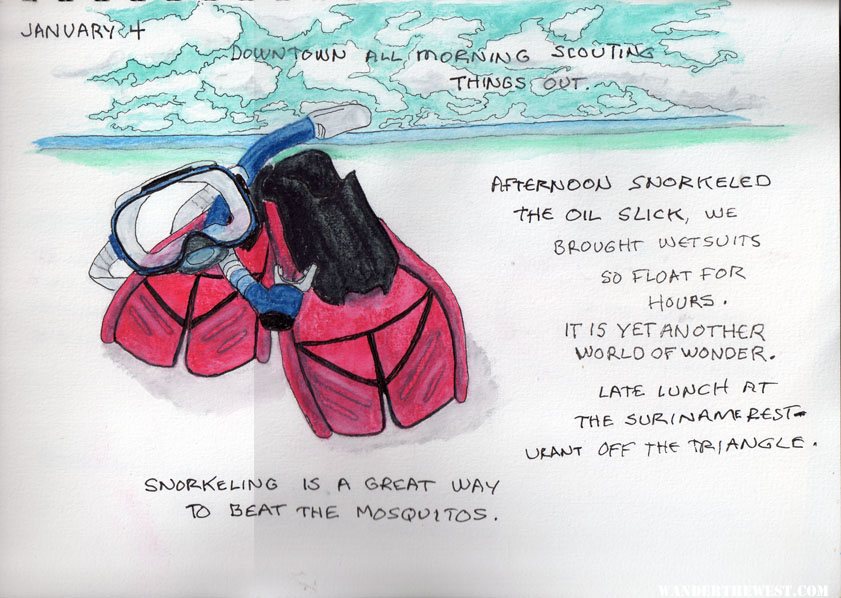 JANUARY 4
DOWNTOWN ALL MORNING SCOUTING
THINGS OUT.
AFTERNOON SNORKELED
THE OIL SLICK, WE
BROUGHT WETSUITS
SO FLOAT FOR
HOURS.
IT IS YET ANOTHER
WORLD OF WONDER.
LATE LUNCH AT
THE SURINAME REST-
URANT OFF THE TRIANGLE.
SNORKELING IS A GREAT WAY
TO BEAT THE MOSQUITOS.
WANDERTHEWEST.COM